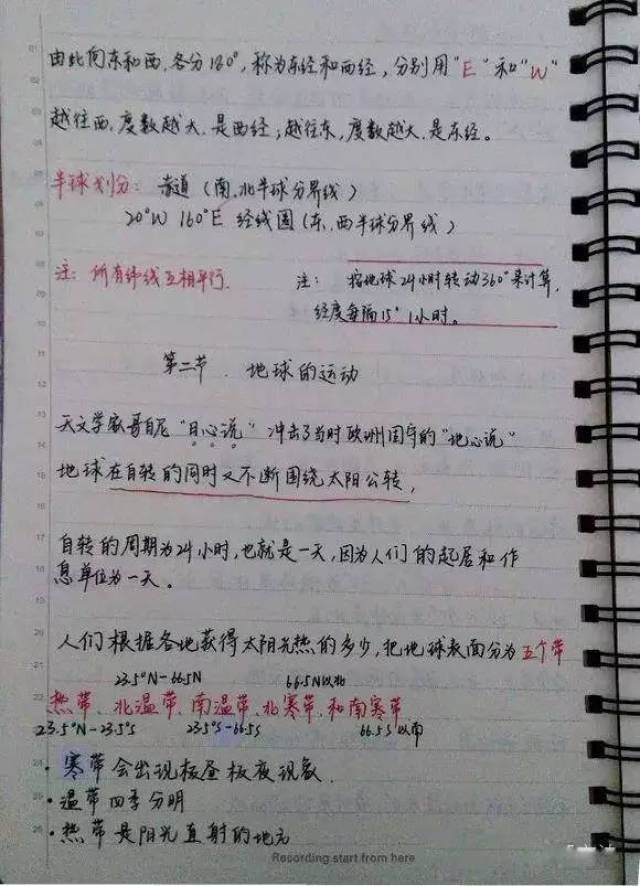 由此向东和西,各分180°,称为东经和西经,分别用"E"和"W"
越往西,度数越大,是西经;越往东,度数越大,是东经。
半球划分: 赤道(南、北半球分界线)
20°W 160°E 经线圈(东、西半球分界线)
注:所有纬线互相平行.
注: 按地球24小时转动360°来计算,
经度每隔15° 1小时。
第二节. 地球的运动
天文学家哥白尼"日心说"冲击了当时欧洲固守的"地心说"
地球在自转的同时又不断围绕太阳公转,
自转的周期为24小时,也就是一天,因为人们的起居和作
息单位为一天。
人们根据各地获得太阳光热的多少,把地球表面分为五个带
23.5°N-66.5N 66.5N以北
热带、北温带、南温带、北寒带、和南寒带
23.5°N-23.5°S 23.5°S-66.5S 66.5S以南
·寒带会出现极昼极夜现象.
·温带四季分明
·热带是阳光直射的地方
Recording start from here
01